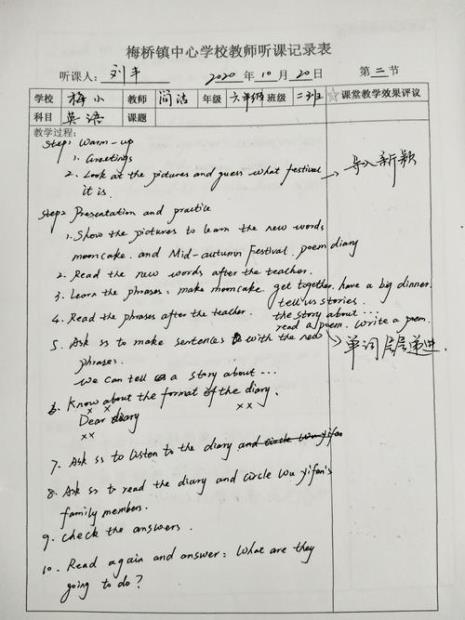 梅桥镇中心学校教师听课记录表
听课人: 刘丰 2020 年 10 月 20 日 第 二 节
学校 梅小 教师 简洁 年级 六年级 班级 二班 课堂教学效果评议
科目 英语 课题
教学过程:
Step1 Warm-up
1. Greetings
2. Look at the pictures and guess what festival → 导入新颖
it is.
Step2 Presentation and practice
1. Show the pictures to learn the new words
mooncake. and Mid-autumn Festival. poem diary
2. Read the new words after the teacher.
3. Learn the phrases: make mooncake get together. have a big dinner.
tell us stories.
4. Read the phrases after the teacher. the story about ...
read a poem. write a poem.
5. Ask ss to make sentences with the new → 单词层层递进.
phrases.
We can tell a story about ...
6. Know about the format of the diary.
x x
Dear diary x x
x x
7. Ask ss to listen to the diary and circle Wu Yifan
8. Ask ss to read the diary and circle Wu Yifan's
family members.
9. Check the answers.
10. Read again and answer: What are they
going to do?